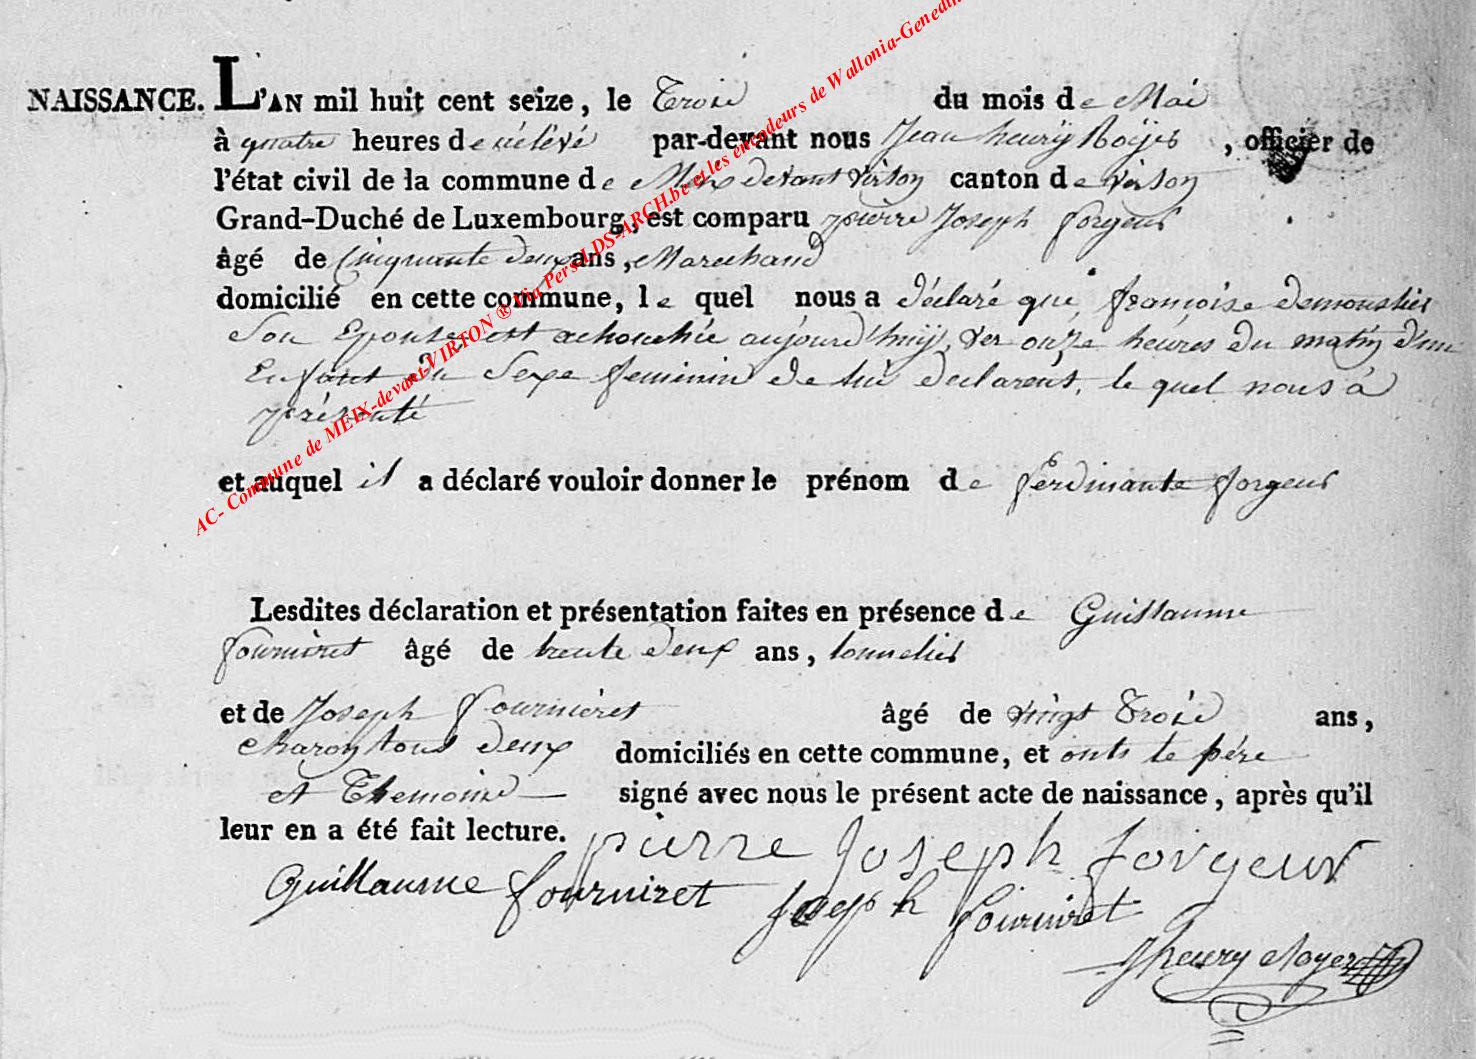 NAISSANCE. L'AN mil huit cent seize, le Trois du mois de Mai
à quatre heures de rélévé par-devant nous Jean henrÿ Roÿer, officier de
l'état civil de la commune de Meix devant Virton canton de virton
Grand-Duché de Luxembourg, est comparu pierre Joseph forgeur
âgé de Cinquante deux ans, Marechand
domicilié en cette commune, le quel nous a déclaré que françoise demoustier
Son Epouse est achouchée aujourd'huij, ver onze heures du matin d'un
Enfant du Sexe feminin de lui declarent, le quel nous á
présenté
et auquel il a déclaré vouloir donner le prénom de ferdinante forgeur
Lesdites déclaration et présentation faites en présence de Guillaume
fourniret âgé de trente deux ans, tonnelier
et de Joseph fourniéret âgé de vingt Trois ans,
charon tous deux domiciliés en cette commune, et onts le pére
et Themoins signé avec nous le présent acte de naissance, après qu'il
leur en a été fait lecture. pierre Joseph forgeur
Guillaume fourniret Joseph fourniret
Jhenry Royer
AC- Commune de MEIX-devant-VIRTON ® Via Pers.LDS-ARCH.be et les encodeurs de Wallonia-Genedin